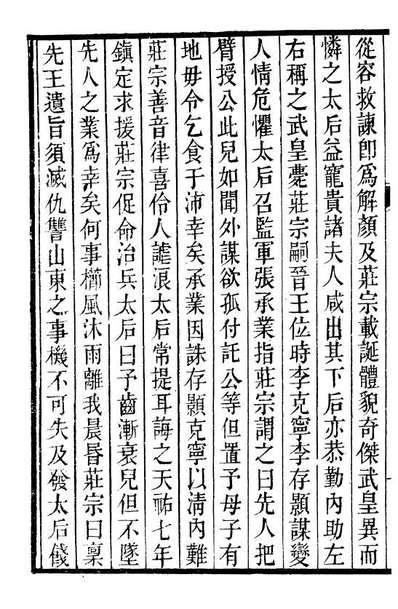 從容救諫卽爲解顏及莊宗載誕體貌奇傑武皇異而
憐之太后益寵貴諸夫人咸出其下后亦恭勤內助左
右稱之武皇薨莊宗嗣晉王位時李克寧李存顥謀變
人情危懼太后召監軍張承業指莊宗謂之曰先人把
臂授公此兒如聞外謀欲孤付託公等但置予母子有
地毋令乞食于沛幸矣承業因誅存顥克寧以淸內難
莊宗善音律喜伶人謔浪太后常提耳誨之天祐七年
鎭定求援莊宗促命治兵太后曰予齒漸衰兒但不墜
先人之業爲幸矣何事櫛風沐雨離我晨昏莊宗曰稟
先王遺旨須滅仇讐山東之事機不可失及發太后餞